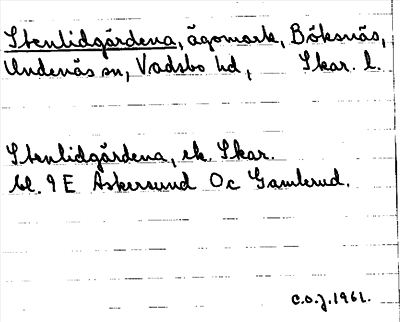 Stenlidgärdena, ägomark, Böksnäs,
Undenäs sn, Vadsbo hd, Skar. l.
Stenlidgärdena, ek. Skar.
bl. 9 E Askersund Oc Gamlerud.
C.O.J. 1961.